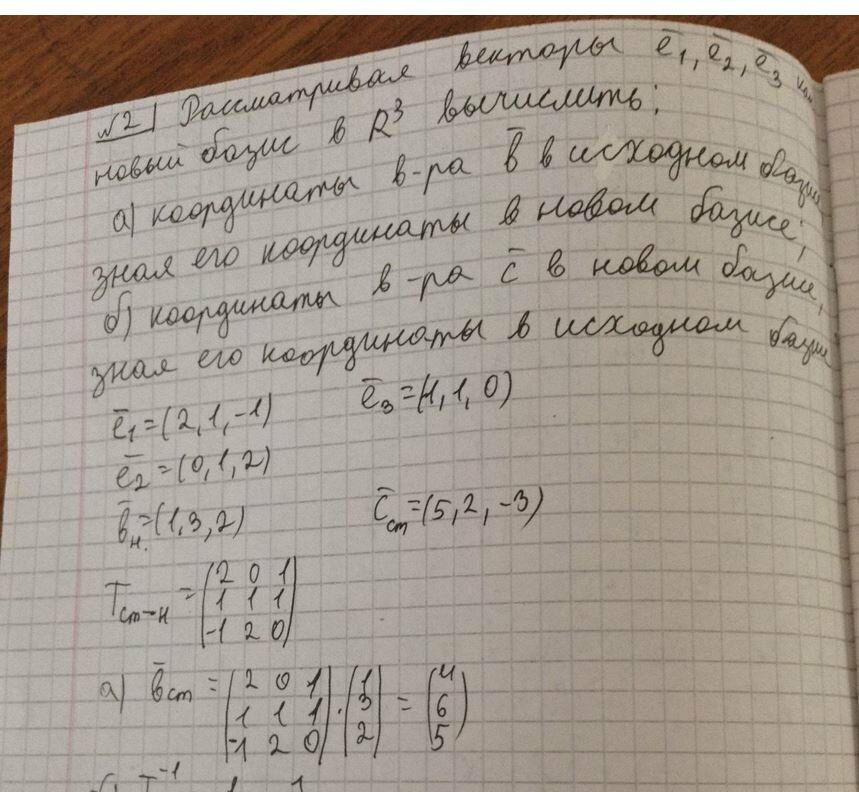 №2 Рассматривая векторы ē₁, ē₂, ē₃ как
новый базис в R³ вычислить:
а) координаты в-ра b̄ в исходном базисе,
зная его координаты в новом базисе;
б) координаты в-ра c̄ в новом базисе,
зная его координаты в исходном базисе
ē₁=(2,1,-1) ē₃=(1,1,0)
ē₂=(0,1,2)
b̄н.=(1,3,2) c̄ст=(5,2,-3)
Tст→н = (2 0 1
1 1 1
-1 2 0)
а) b̄ст = (2 0 1
1 1 1
-1 2 0) · (1
3
2) = (4
6
5)